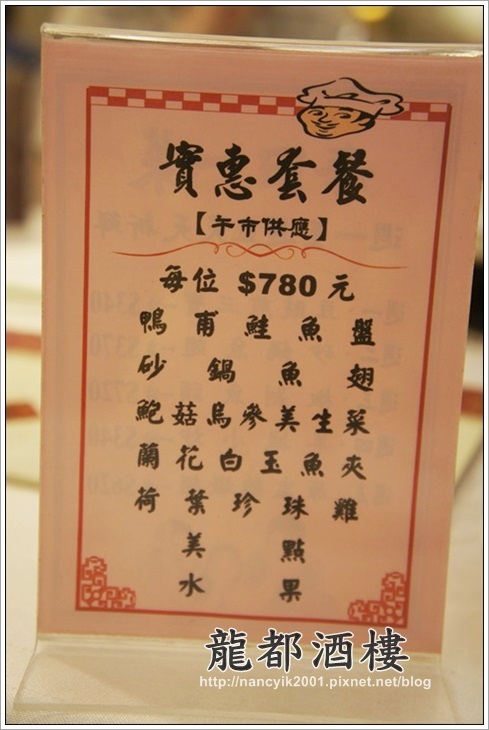 實惠套餐
【午市供應】
每位 $780 元
鴨甫鮭魚盤
砂鍋魚翅
鮑菇烏參美生菜
蘭花白玉魚夾
荷葉珍珠雞
美點
水果
龍都酒樓
http://nancyik2001.pixnet.net/blog